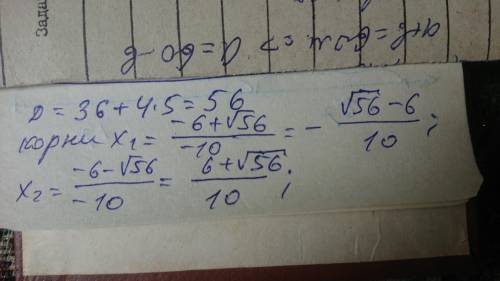 Зада
a+b=60м => a=60-b
D=36+4·5=56
корни x₁= (-6+√56)/(-10) = - (√56-6)/10;
x₂= (-6-√56)/(-10) = (6+√56)/10;